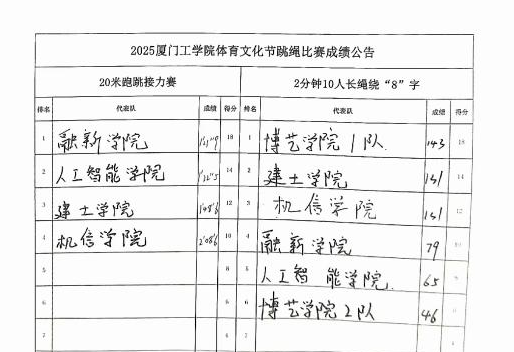 2025厦门工学院体育文化节跳绳比赛成绩公告
20米跑跳接力赛 2分钟10人长绳绕“8”字
排名 代表队 成绩 得分 排名 代表队 成绩 得分
1 融新学院 18 1 博艺学院1队 143 18
2 人工智能学院 14 2 建土学院 131 14
3 建土学院 1'48"6 12 3 机信学院 131 12
4 机信学院 2'08"6 10 4 融新学院 79 10
5 8 5 人工智能学院 65
6 6 6 博艺学院2队 46
7 4 7